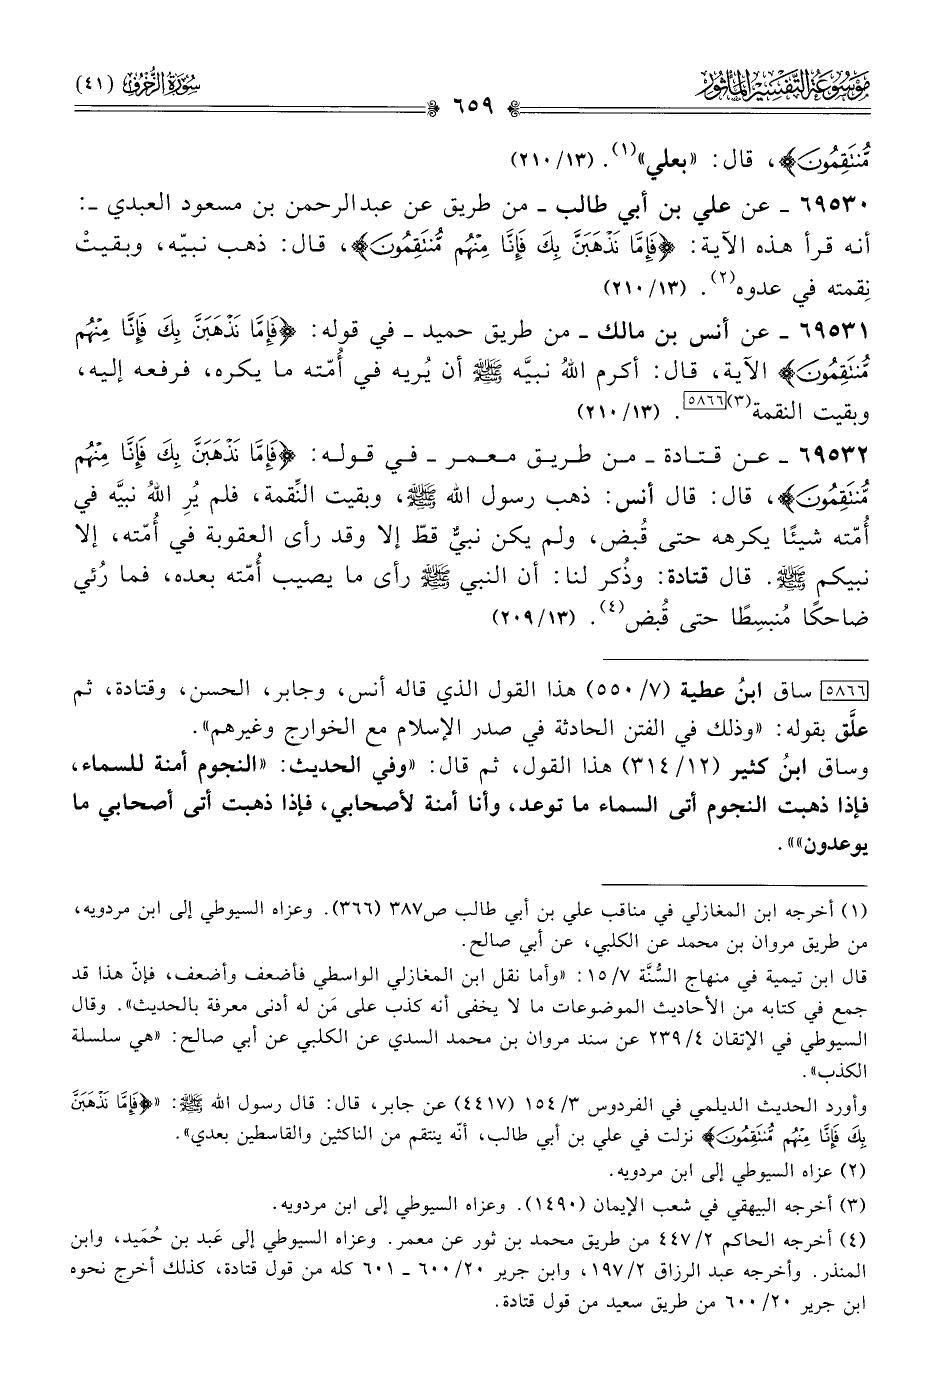 موسوعة التفسير المأثور
٦٥٩
سورة الزخرف (٤١)
مُّنتَقِمُونَ﴾، قال: «بعلي»(١). (١٣/ ٢١٠)
٦٩٥٣٠ ـ عن علي بن أبي طالب ـ من طريق عن عبدالرحمن بن مسعود العبدي ـ:
أنه قرأ هذه الآية: ﴿فَإِمَّا نَذْهَبَنَّ بِكَ فَإِنَّا مِنْهُم مُّنتَقِمُونَ﴾، قال: ذهب نبيّه، وبقيتْ
نِقمته في عدوه(٢). (١٣/ ٢١٠)
٦٩٥٣١ ـ عن أنس بن مالك ـ من طريق حميد ـ في قوله: ﴿فَإِمَّا نَذْهَبَنَّ بِكَ فَإِنَّا مِنْهُم
مُّنتَقِمُونَ﴾ الآية، قال: أكرم اللهُ نبيَّه ﷺ أن يُريه في أُمّته ما يكره، فرفعه إليه،
وبقيت النقمة(٣)[٥٨٦٦]. (١٣/ ٢١٠)
٦٩٥٣٢ ـ عن قتادة ـ من طريق معمر ـ في قوله: ﴿فَإِمَّا نَذْهَبَنَّ بِكَ فَإِنَّا مِنْهُم
مُّنتَقِمُونَ﴾، قال: قال أنس: ذهب رسول الله ﷺ، وبقيت النِّقمة، فلم يُرِ اللهُ نبيَّه في
أُمّته شيئًا يكرهه حتى قُبض، ولم يكن نبيٌّ قطّ إلا وقد رأى العقوبة في أُمّته، إلا
نبيكم ﷺ. قال قتادة: وذُكر لنا: أن النبي ﷺ رأى ما يصيب أُمّته بعده، فما رُئي
ضاحكًا مُنبسِطًا حتى قُبض(٤). (١٣/ ٢٠٩)
[٥٨٦٦] ساق ابنُ عطية (٧/ ٥٥٠) هذا القول الذي قاله أنس، وجابر، الحسن، وقتادة، ثم
علَّق بقوله: «وذلك في الفتن الحادثة في صدر الإسلام مع الخوارج وغيرهم».
وساق ابنُ كثير (١٢/ ٣١٤) هذا القول، ثم قال: «وفي الحديث: «النجوم أمنة للسماء،
فإذا ذهبت النجوم أتى السماء ما توعد، وأنا أمنة لأصحابي، فإذا ذهبت أتى أصحابي ما
يوعدون»».
(١) أخرجه ابن المغازلي في مناقب علي بن أبي طالب ص٣٨٧ (٣٦٦). وعزاه السيوطي إلى ابن مردويه،
من طريق مروان بن محمد عن الكلبي، عن أبي صالح.
قال ابن تيمية في منهاج السُّنَّة ٧/ ١٥: «وأما نقل ابن المغازلي الواسطي فأضعف وأضعف، فإنّ هذا قد
جمع في كتابه من الأحاديث الموضوعات ما لا يخفى أنه كذب على مَن له أدنى معرفة بالحديث». وقال
السيوطي في الإتقان ٤/ ٢٣٩ عن سند مروان بن محمد السدي عن الكلبي عن أبي صالح: «هي سلسلة
الكذب».
وأورد الحديث الديلمي في الفردوس ٣/ ١٥٤ (٤٤١٧) عن جابر، قال: قال رسول الله ﷺ: «﴿فَإِمَّا نَذْهَبَنَّ
بِكَ فَإِنَّا مِنْهُم مُّنتَقِمُونَ﴾ نزلت في علي بن أبي طالب، أنّه ينتقم من الناكثين والقاسطين بعدي».
(٢) عزاه السيوطي إلى ابن مردويه.
(٣) أخرجه البيهقي في شعب الإيمان (١٤٩٠). وعزاه السيوطي إلى ابن مردويه.
(٤) أخرجه الحاكم ٢/ ٤٤٧ من طريق محمد بن ثور عن معمر. وعزاه السيوطي إلى عَبد بن حُمَيد، وابن
المنذر. وأخرجه عبد الرزاق ٢/ ١٩٧، وابن جرير ٢٠/ ٦٠٠ ـ ٦٠١ كله من قول قتادة، كذلك أخرج نحوه
ابن جرير ٢٠/ ٦٠٠ من طريق سعيد من قول قتادة.